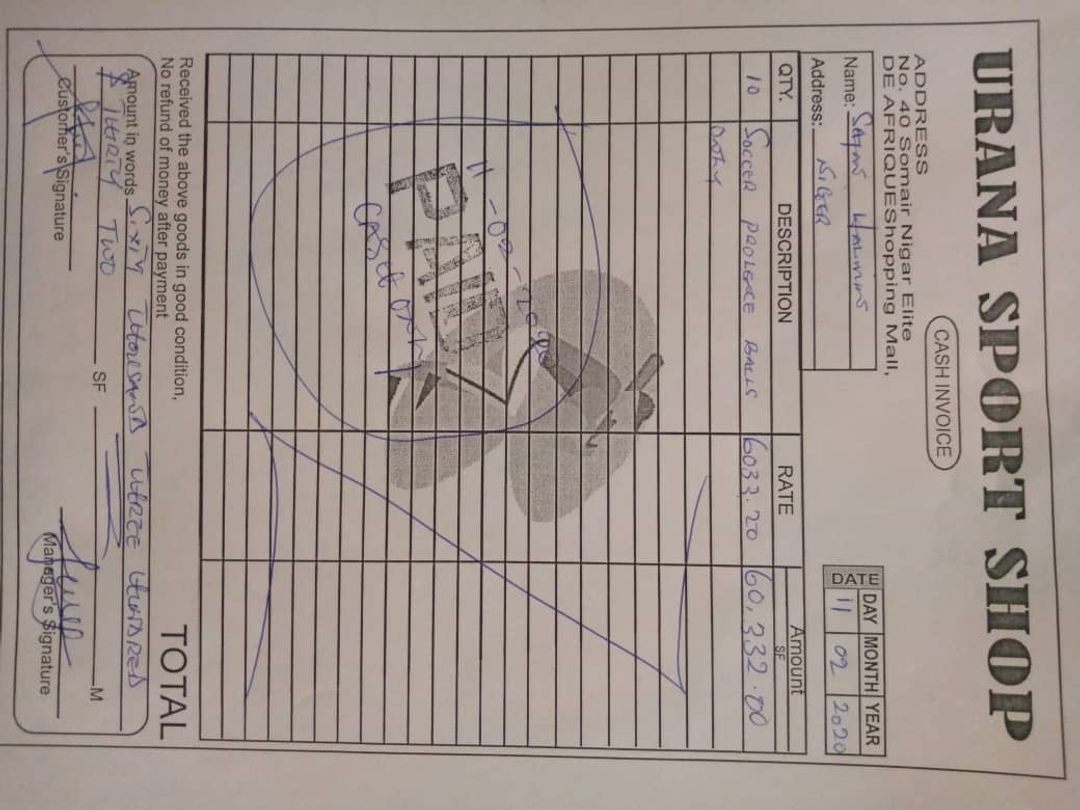 URANA SPORT SHOP
CASH INVOICE
ADDRESS
No. 40 Somair Nigar Elite
DE AFRIQUEShopping Mall,
Name:
Address: NIGER
DATE DAY MONTH YEAR
11 02 2020
QTY. DESCRIPTION RATE Amount
SF
10 SOCCER BALLS 6033.20 60,332.00
ONLY
11-02-2020
PAID
CASH ONLY
TOTAL
Received the above goods in good condition,
No refund of money after payment
Amount in words SIXTY THOUSAND THREE HUNDRED
& THIRTY TWO SF M
Customer's Signature Manager's Signature